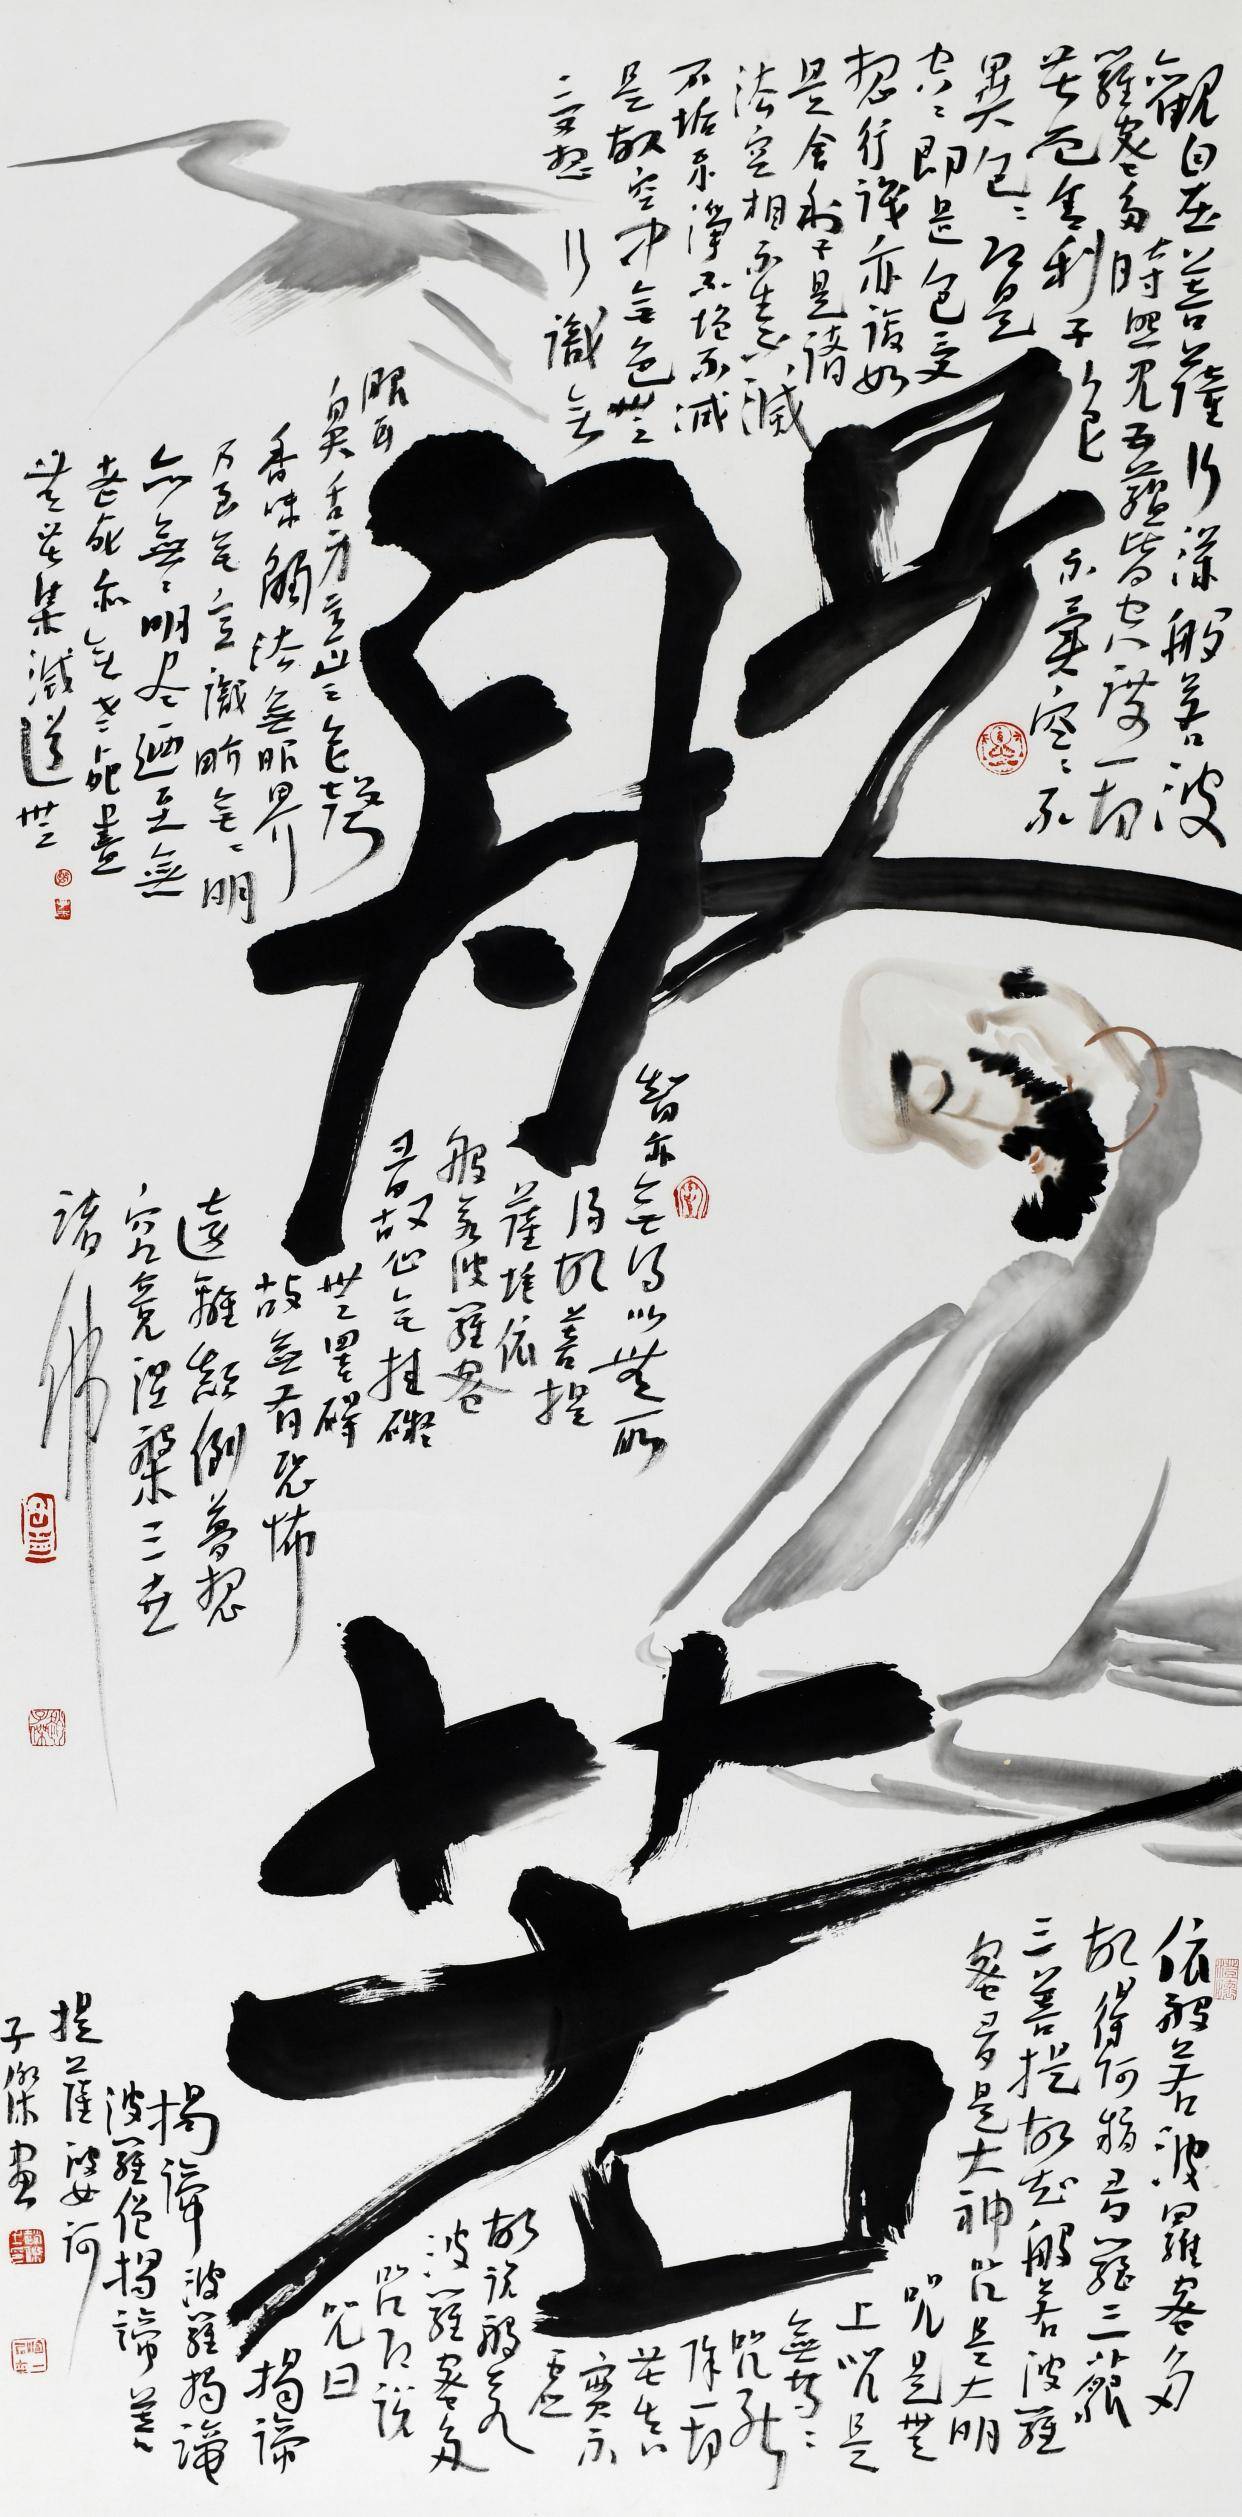 般若
觀自在菩薩行深般若波
羅蜜多時照見五蘊皆空度一切
苦厄舍利子色不異空空不
異色色即是
空空即是色受
想行識亦復如
是舍利子是諸
法空相不生不滅
不垢不淨不增不減
是故空中無色無
受想行識無
眼耳
鼻舌身意無色聲
香味觸法無眼界
乃至無意識界無無明
亦無無明盡迺至無
老死亦無老死盡
無苦集滅道無
智亦無得以無所
得故菩提
薩埵依
般若波羅蜜
多故心無挂礙
無罣礙
故無有恐怖
遠離顛倒夢想
究竟涅槃三世
諸佛
依般若波羅蜜多
故得阿耨多羅三藐
三菩提故知般若波羅
蜜多是大神咒是大明
咒是無
上咒是
無等等
咒能
除一切
苦真
實不
虛
故說般若
波羅蜜多
咒即說
咒曰
揭諦
揭諦波羅揭諦
波羅僧揭諦菩
提薩婆訶
子傑畫